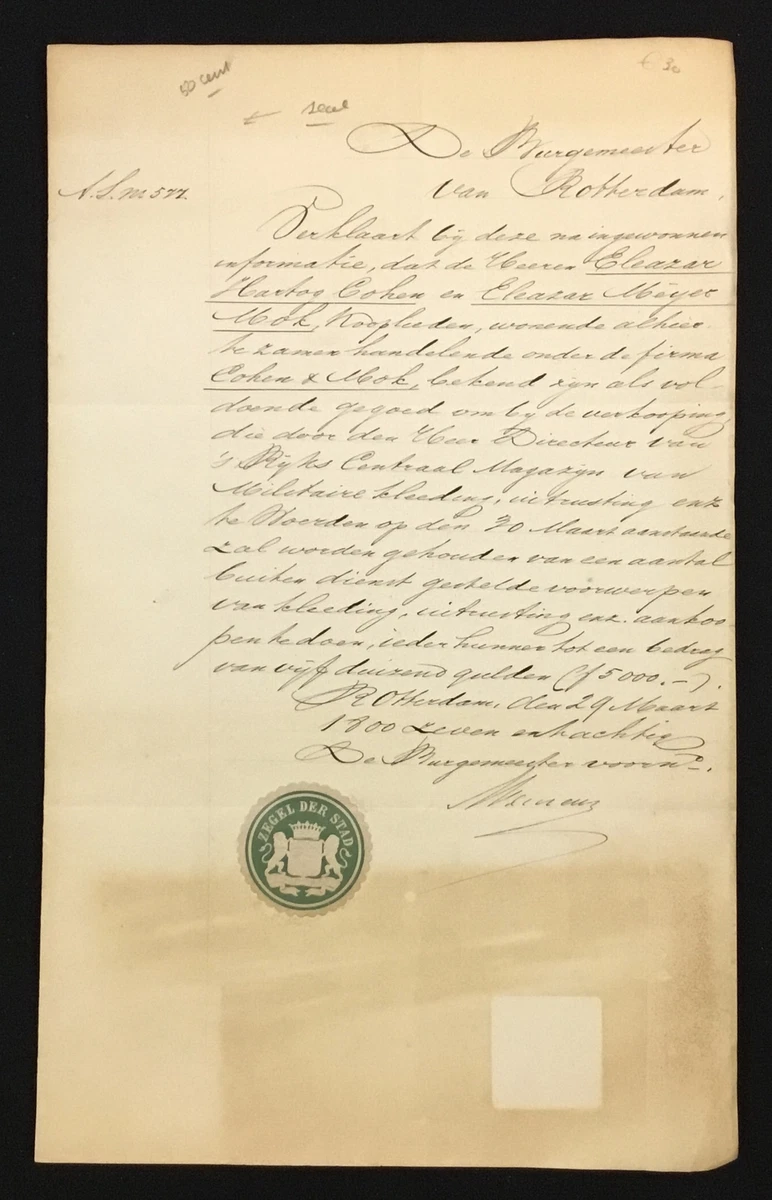 50 cent
€ 30
De Burgemeester
van Rotterdam,
A.S. no 577.
Verklaart bij deze na ingewonnen
informatie, dat de Heeren Eleazar
Hartog Cohen en Eleazar Meijer
Mok, Kooplieden, wonende alhier
te zamen handelende onder de firma
Cohen & Mok, bekend zijn als vol-
doende gegoed om bij de verkooping
die door den Heer Directeur van
's Rijks Centraal Magazijn van
Militaire kleeding, uitrusting enz
te Woerden op den 30 Maart aanstaande
zal worden gehouden van een aantal
buiten dienst gestelde voorwerpen
van kleeding, uitrusting enz. aankoo
pen te doen, ieder hunner tot een bedrag
van vijf duizend gulden (f 5000.-).
Rotterdam, den 29 Maart
1800 zeven en tachtig
De Burgemeester voornd.
ZEGEL DER STAD